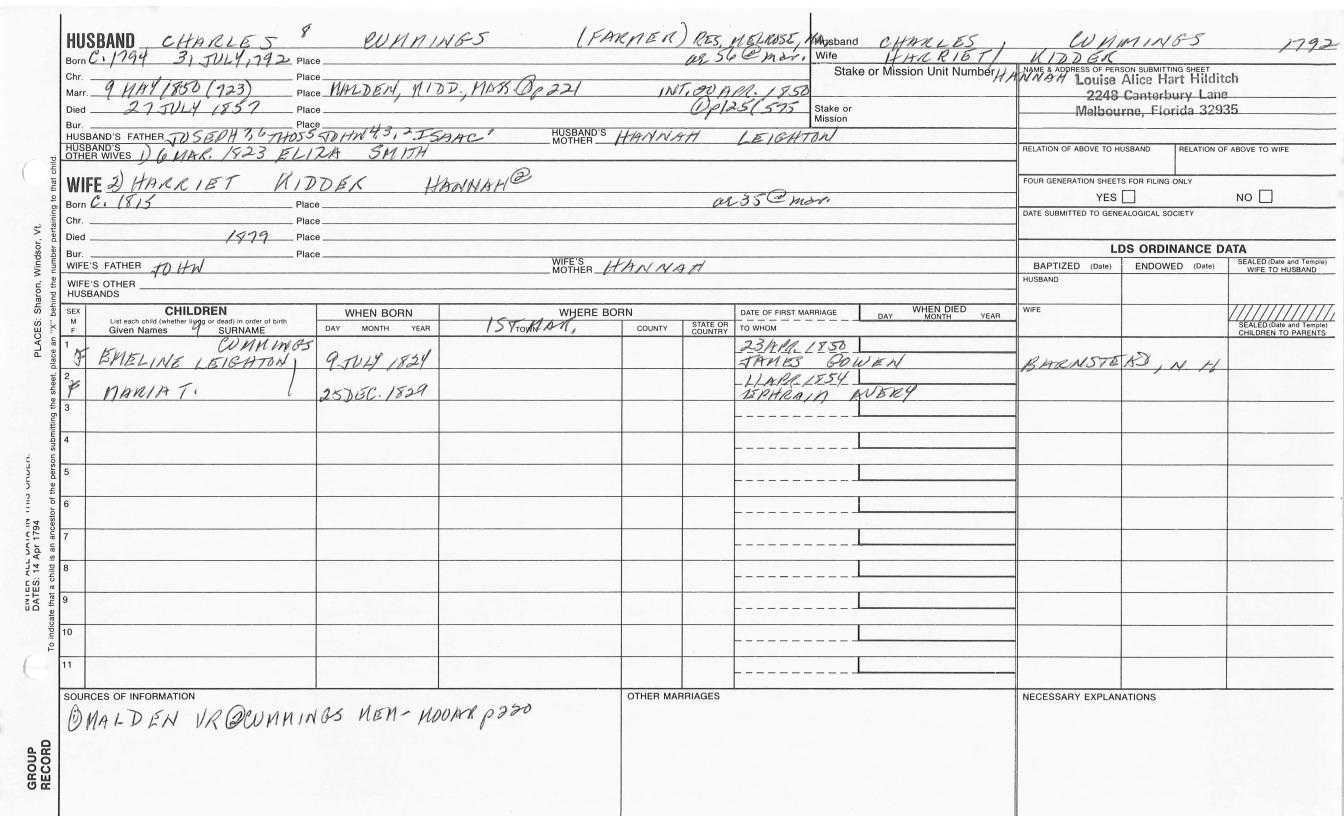 HUSBAND CHARLES 8 CUMMINGS (FARMER) RES. MELROSE, MA
Husband CHARLES CUMMINGS 1792
Wife HARRIET/ KIDDER
HANNAH
Born C. 1794 31 JULY, 1792 Place ae 56 @ mar.
Chr. Place
Stake or Mission Unit Number
NAME & ADDRESS OF PERSON SUBMITTING SHEET
Louise Alice Hart Hilditch
2248 Canterbury Lane
Melbourne, Florida 32935
Marr. 9 MAY 1850 (1923) Place MALDEN, MIDD., MASS ① p 221 INT. 20 APR. 1850
Died 27 JULY 1857 Place ① p 125 (575
Stake or
Mission
Bur. Place
HUSBAND'S FATHER JOSEPH 7,6 THOS 5 JOHN 4,3,2 ISAAC 1 HUSBAND'S MOTHER HANNAH LEIGHTON
HUSBAND'S OTHER WIVES 1) 6 MAR. 1823 ELIZA SMITH
RELATION OF ABOVE TO HUSBAND RELATION OF ABOVE TO WIFE
WIFE 2) HARRIET KIDDER HANNAH ②
FOUR GENERATION SHEETS FOR FILING ONLY
YES NO
Born C. 1815 Place ae 35 @ mar.
Chr. Place
DATE SUBMITTED TO GENEALOGICAL SOCIETY
Died 1879 Place
Bur. Place
LDS ORDINANCE DATA
WIFE'S FATHER JOHN WIFE'S MOTHER HANNAH
WIFE'S OTHER HUSBANDS
BAPTIZED (Date) ENDOWED (Date) SEALED (Date and Temple) WIFE TO HUSBAND
HUSBAND
WIFE
SEALED (Date and Temple) CHILDREN TO PARENTS
SEX M F
CHILDREN
List each child (whether living or dead) in order of birth
Given Names 9 SURNAME
WHEN BORN
DAY MONTH YEAR
WHERE BORN
1ST MAR.
TOWN COUNTY STATE OR COUNTRY
DATE OF FIRST MARRIAGE
TO WHOM
WHEN DIED
DAY MONTH YEAR
CUMMINGS
1 F EMELINE LEIGHTON 9 JULY 1824 23 APR. 1850 JAMES BOWEN BARNSTEAD, N H
2 F MARIA T. 25 DEC. 1829 11 APR. 1854 EPHRAIM AVERY
3
4
5
6
7
8
9
10
11
SOURCES OF INFORMATION
① MALDEN VR ② CUMMINGS MEM- MOOAR p 220
OTHER MARRIAGES
NECESSARY EXPLANATIONS
ENTER ALL DATA IN THIS ORDER:
DATES: 14 Apr 1794
PLACES: Sharon, Windsor, Vt.
To indicate that a child is an ancestor of the person submitting the sheet, place an "X" behind the number pertaining to that child.
GROUP
RECORD